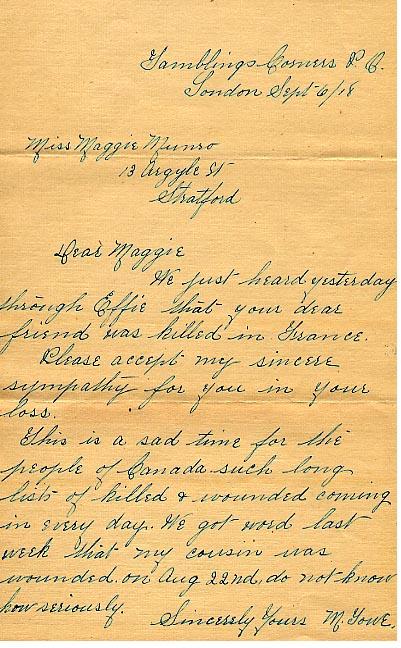 Gamblings Corners P.O.
London Sept 6/18
Miss Maggie Munro
13 Argyle St
Stratford
Dear Maggie
We just heard yesterday
through Effie that your dear
friend was killed in France.
Please accept my sincere
sympathy for you in your
loss.
This is a sad time for the
people of Canada such long
lists of killed & wounded coming
in every day. We got word last
week that my cousin was
wounded on Aug 22nd, do not know
how seriously.
Sincerely Yours M.